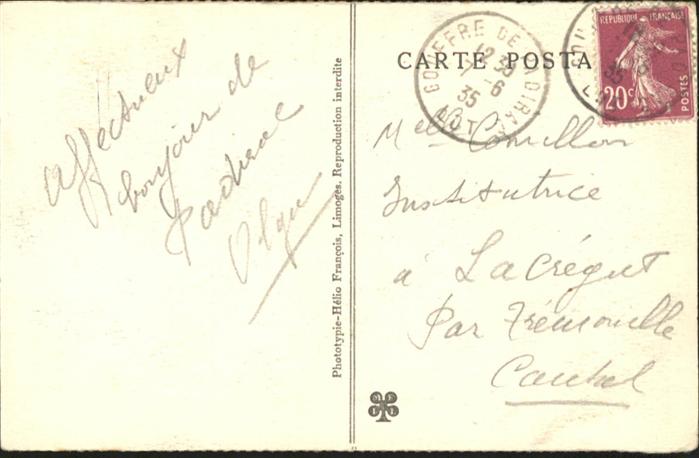 Affectueux
bonjour de
Padirac
Olga
Phototypie-Hélio François, Limoges. Reproduction interdite
CARTE POSTA
GOUFFRE DE PADIRAC
12 35
7 -6
35
LOT
REPUBLIQUE FRANÇAISE
20c
Melle
Institutrice
à Lacrégut
Par Trémouille
Cantal